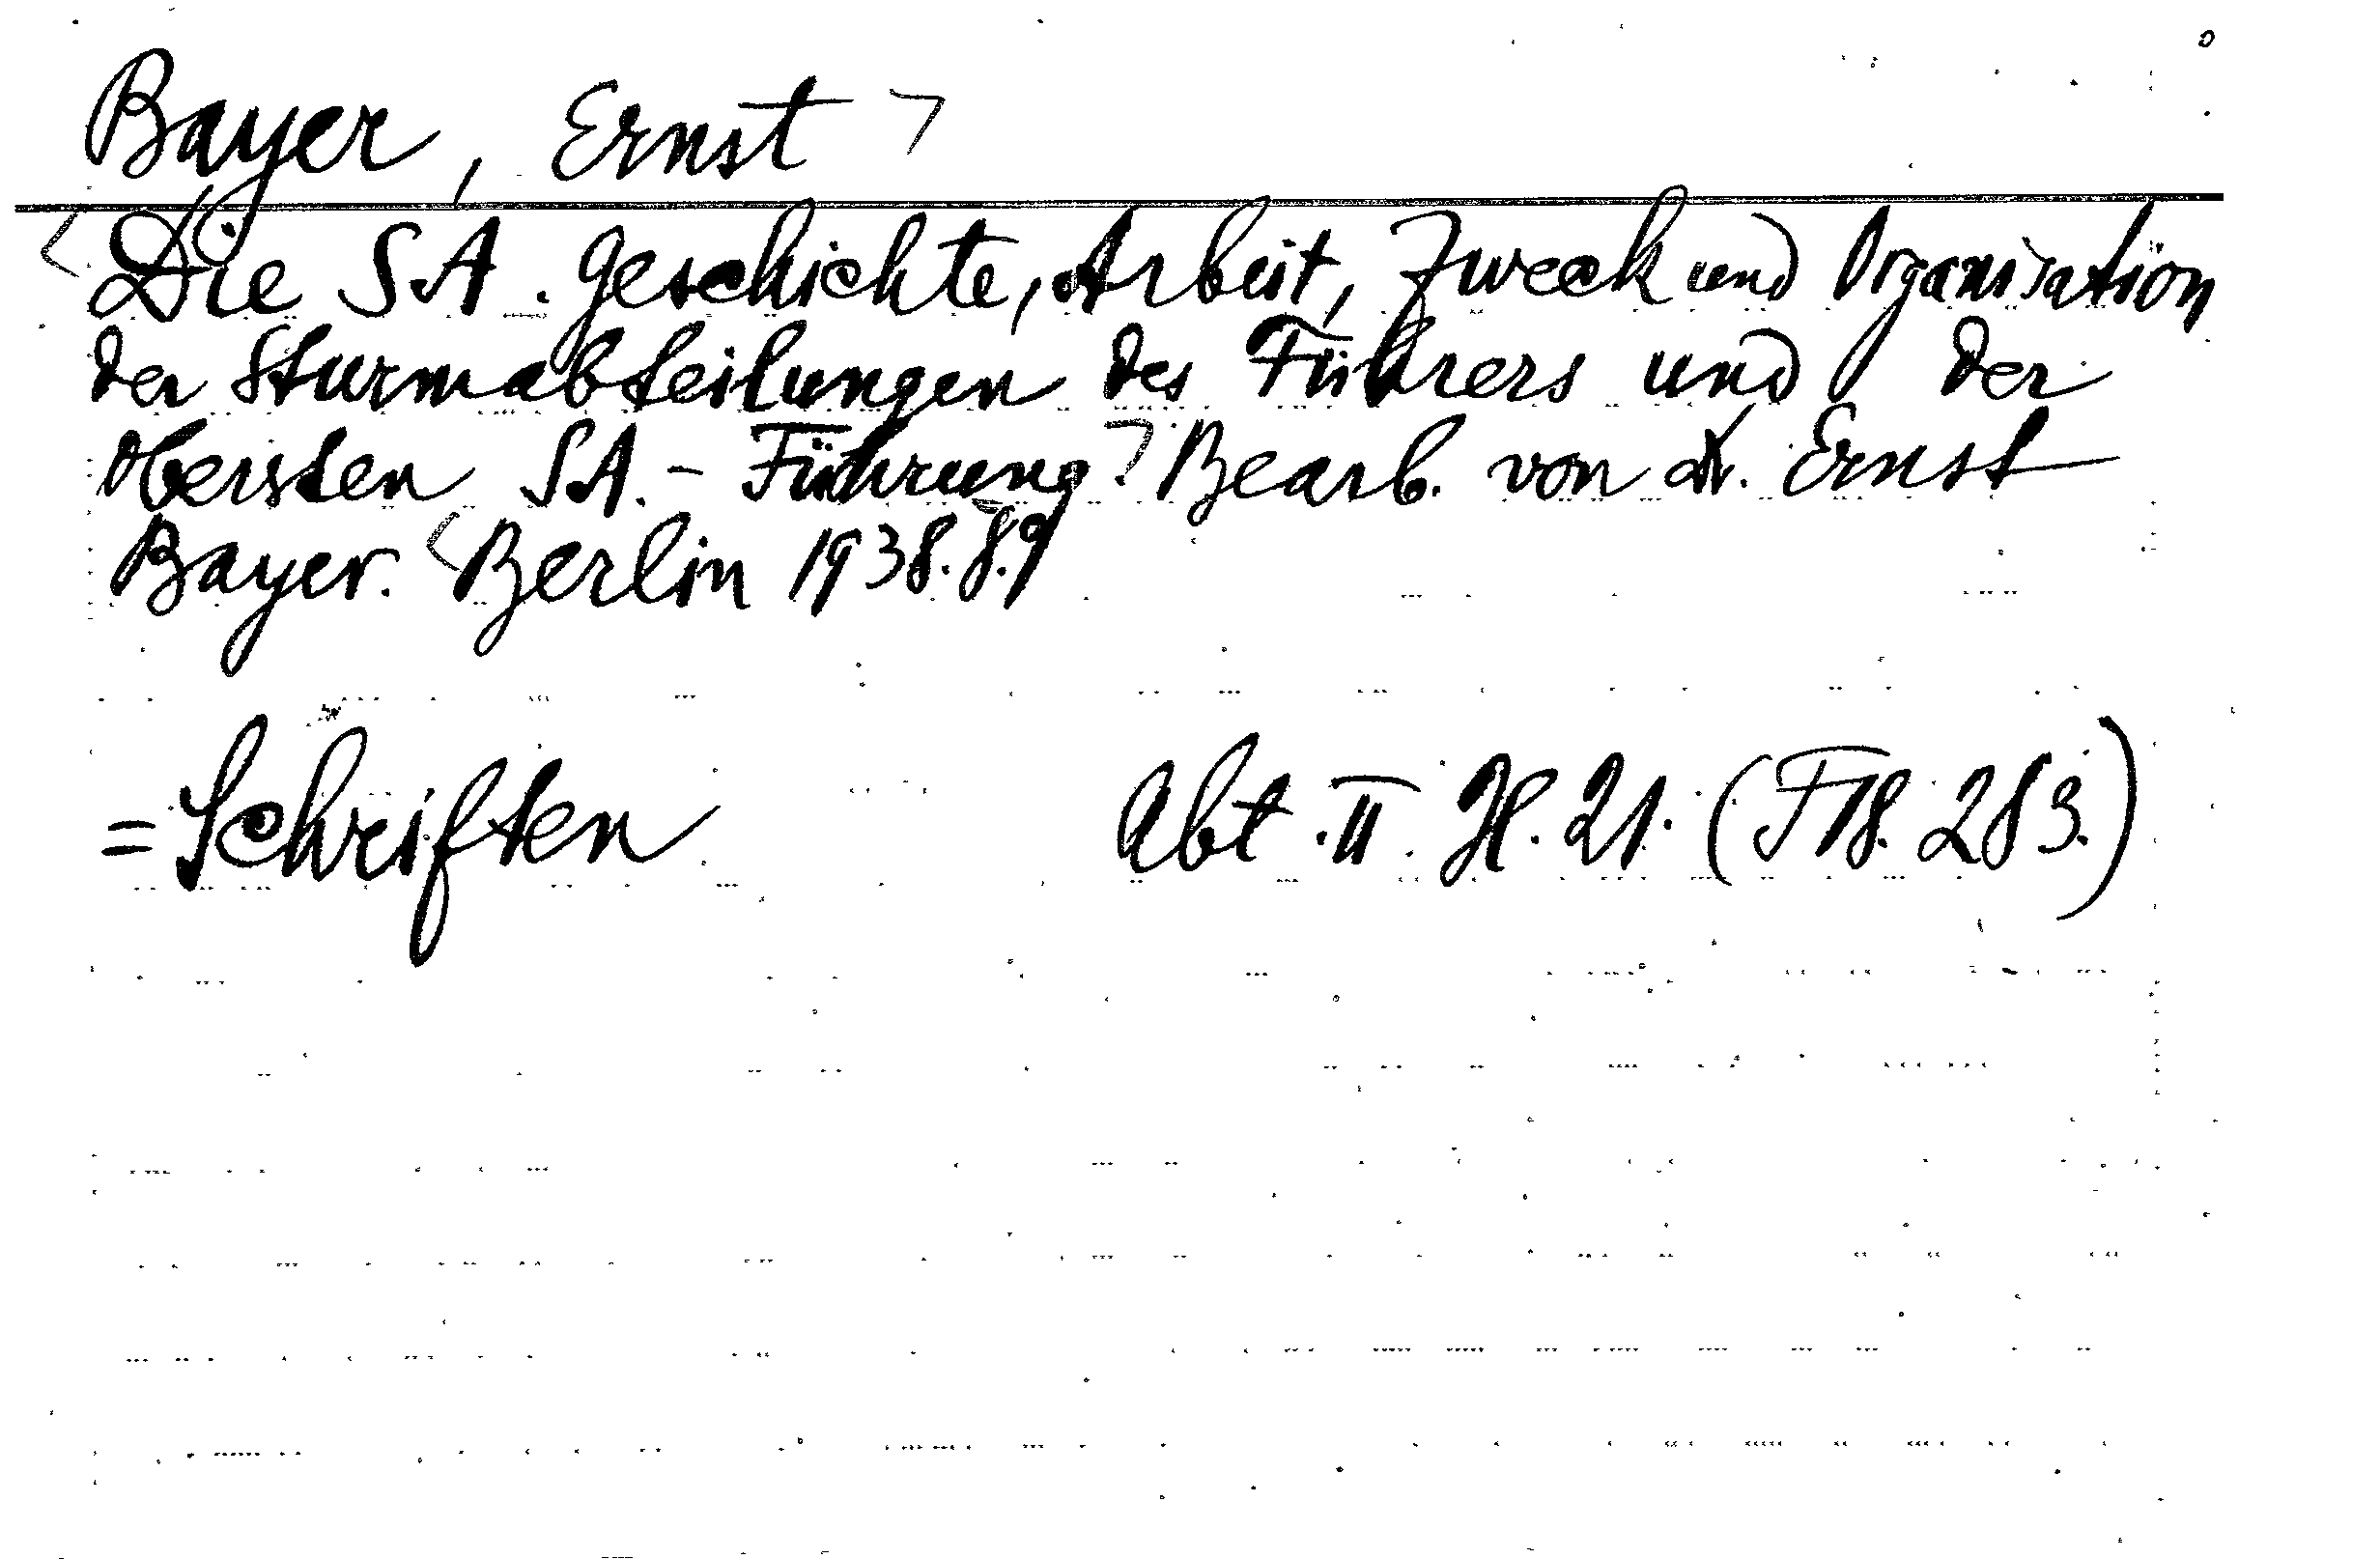 Bayer, Ernst >
<Die SA. Geschichte, Arbeit, Zweck und Organisation
der Sturmabteilungen des Führers und der
Obersten SA.-Führung> Bearb. von Dr. Ernst
Bayer. <Berlin 1938. 8.9
=Schriften Abt. II. H. 21. (F18. 283.)